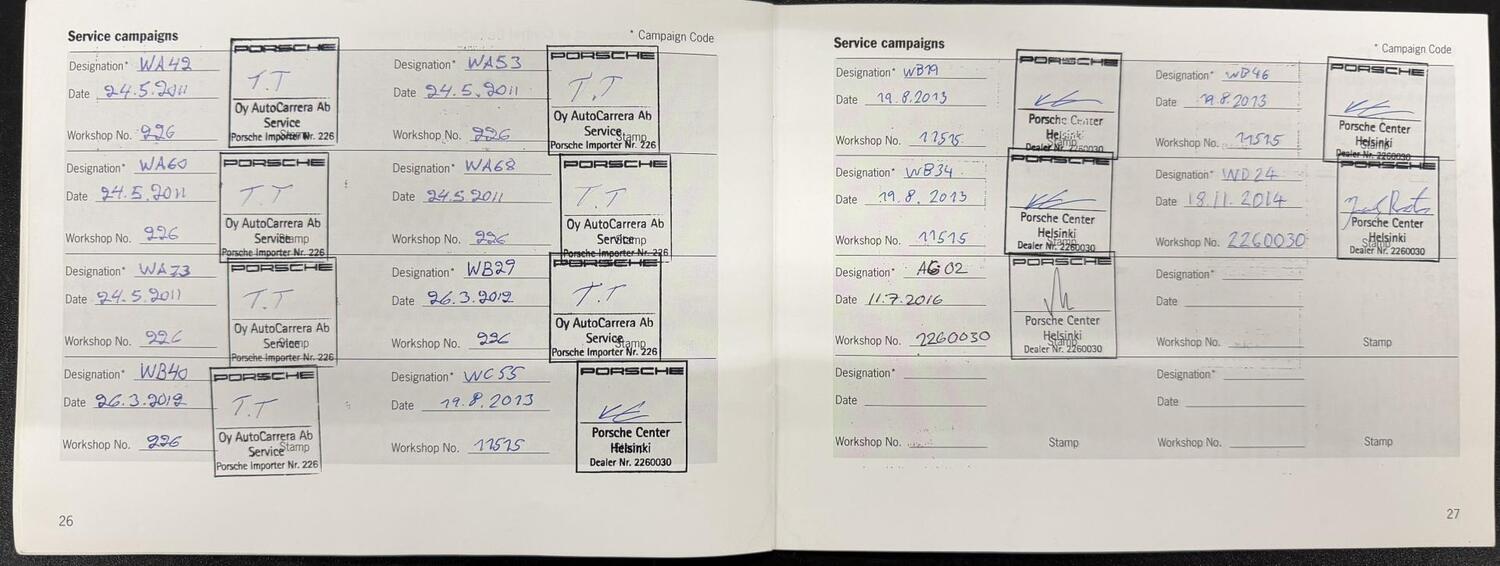 Service campaigns
* Campaign Code
Designation* WA42
Date 24.5.2011
Workshop No. 226
PORSCHE
T.T
Oy AutoCarrera Ab
Service
Stamp
Porsche Importer Nr. 226
Designation* WA53
Date 24.5.2011
Workshop No. 226
PORSCHE
T.T
Oy AutoCarrera Ab
Service
Stamp
Porsche Importer Nr. 226
Designation* WA60
Date 24.5.2011
Workshop No. 226
PORSCHE
T.T
Oy AutoCarrera Ab
Service
Stamp
Porsche Importer Nr. 226
Designation* WA68
Date 24.5.2011
Workshop No. 226
PORSCHE
T.T
Oy AutoCarrera Ab
Service
Stamp
Porsche Importer Nr. 226
Designation* WA73
Date 24.5.2011
Workshop No. 226
PORSCHE
T.T
Oy AutoCarrera Ab
Service
Stamp
Porsche Importer Nr. 226
Designation* WB29
Date 26.3.2012
Workshop No. 226
PORSCHE
T.T
Oy AutoCarrera Ab
Service
Stamp
Porsche Importer Nr. 226
Designation* WB40
Date 26.3.2012
Workshop No. 226
PORSCHE
T.T
Oy AutoCarrera Ab
Service
Stamp
Porsche Importer Nr. 226
Designation* WC55
Date 19.8.2013
Workshop No. 11515
PORSCHE
Porsche Center
Helsinki
Stamp
Dealer Nr. 2260030
26
Service campaigns
* Campaign Code
Designation* WB19
Date 19.8.2013
Workshop No. 11515
PORSCHE
Porsche Center
Helsinki
Stamp
Dealer Nr. 2260030
Designation* WD46
Date 19.8.2013
Workshop No. 11515
PORSCHE
Porsche Center
Helsinki
Stamp
Dealer Nr. 2260030
Designation* WB34
Date 19.8.2013
Workshop No. 11515
PORSCHE
Porsche Center
Helsinki
Stamp
Dealer Nr. 2260030
Designation* WD24
Date 18.11.2014
Workshop No. 2260030
PORSCHE
Porsche Center
Helsinki
Stamp
Dealer Nr. 2260030
Designation* AG02
Date 11.7.2016
Workshop No. 2260030
PORSCHE
Porsche Center
Helsinki
Stamp
Dealer Nr. 2260030
Designation*
Date
Workshop No.
Stamp
Designation*
Date
Workshop No.
Stamp
Designation*
Date
Workshop No.
Stamp
27